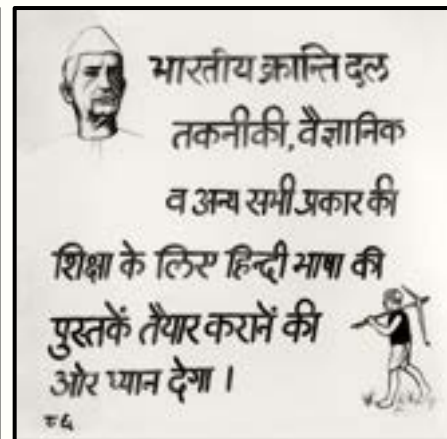 भारतीय क्रान्ति दल
तकनीकी, वैज्ञानिक
व अन्य सभी प्रकार की
शिक्षा के लिए हिन्दी भाषा की
पुस्तकें तैयार करानें की
ओर ध्यान देगा ।